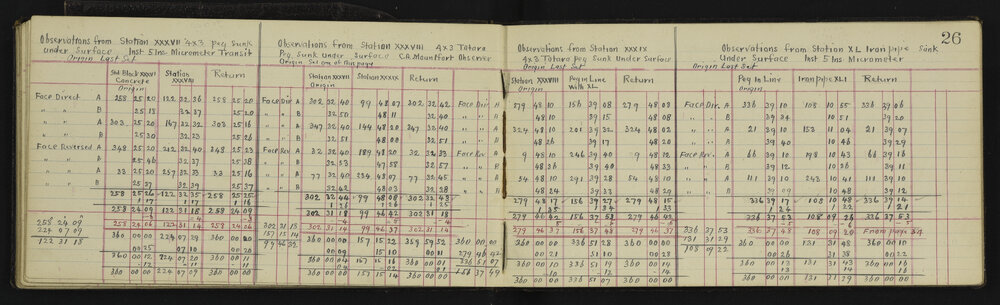 26
Observations from Station XXXVII 4x3 peg sunk
under Surface Inst 5 Ins Micrometer Transit
Origin Last Set
Std Block XXXVI Station Return
Concrete XXXVIII
Origin
Face Direct A 258 25 20 122 32 36 258 25 20
" " B 25 13 32 37 25 20
" " A 303 25 20 167 32 32 303 25 16
" " B 25 30 32 33 25 26
Face Reversed A 348 25 20 212 32 40 348 25 23
" " B 25 46 32 37 25 38
" " A 33 25 20 257 32 33 33 25 16
" " B 25 37 32 39 25 37
258 25 26 122 32 35 258 25 25
1 17 1 17 1 16
258 24 09 122 31 18 258 24 09
258 24 06 122 31 14 258 24 06
258 24 09
224 07 09
122 31 18
360 00 00 224 07 29 360 00 20
00 25 07 10 00 20
360 00 12 224 07 20 360 00 11
360 00 00 224 07 09 360 00 00
Observations from Station XXXVIII 4x3 Totara
Peg Sunk under Surface C.A. Mountfort Observer
Origin Set one of this page
Station XXXVII Station XXXIX Return
Origin
Face Dir A 302 32 40 99 48 07 302 32 42
" " B 32 50 48 11 32 40
" " A 347 32 40 144 48 20 347 32 40
" " B 32 51 48 00 32 51
Face Rev A 32 32 40 189 48 20 32 32 33
" " B 32 53 47 58 32 57
" " A 77 32 40 234 48 07 77 32 45
" " B 32 42 48 03 32 28
302 32 44 99 48 08 302 32 43
1 26 1 26 1 25
302 31 18 99 46 42 302 31 18
302 31 14 99 46 37 302 31 14
302 31 13
157 15 14
99 46 32
360 00 00 157 15 22 359 59 52
360 00 04 157 15 16 360 00 01
360 00 00 157 15 14 360 00 00
Observations from Station XXXIX
4x3 Totara Peg Sunk Under Surface
Origin Last Set
Station XXXVIII Peg in Line Return
Origin With XL
Face Dir A 279 48 10 156 39 08 279 48 03
" " B 48 10 39 15 48 08
" " A 324 48 10 201 39 32 324 48 02
" " B 48 26 39 17 48 20
Face Rev A 9 48 10 246 39 40 9 48 32
" " B 48 36 39 40 48 33
" " A 54 48 10 291 39 28 54 48 10
" " B 48 24 39 33 48 29
279 48 17 156 39 27 279 48 15
1 35 1 34 1 33
279 46 42 156 37 53 279 46 42
279 46 37 156 37 48 279 46 37
360 00 00
279 46 42
336 51 07
156 37 49
360 00 00 336 51 28 360 00 00
360 00 10 336 51 19 360 00 14
360 00 00 336 51 07 360 00 00
Observations from Station XL Iron pipe Sunk
Under Surface Inst 5 Ins Micrometer
Origin Last Set
Peg In Line Iron pipe XLI Return
Origin
Face Dir. A 336 39 10 108 10 55 336 39 06
" " B 39 34 10 51 39 20
" " A 21 39 10 153 11 04 21 39 07
" " B 39 40 10 46 39 29
Face Rev. A 66 39 10 198 10 43 66 39 16
" " B 39 12 10 36 39 11
" " A 111 39 10 243 10 41 111 39 10
" " B 39 09 10 48 39 12
336 39 17 108 10 48 336 39 14
336 37 53 108 09 26 336 37 53
336 37 48 108 09 20 From page 24
336 37 53
131 31 29
108 09 22
360 00 00 131 31 48 360 00 10
360 00 13 131 31 43 360 00 16
360 00 00 131 31 29 360 00 00